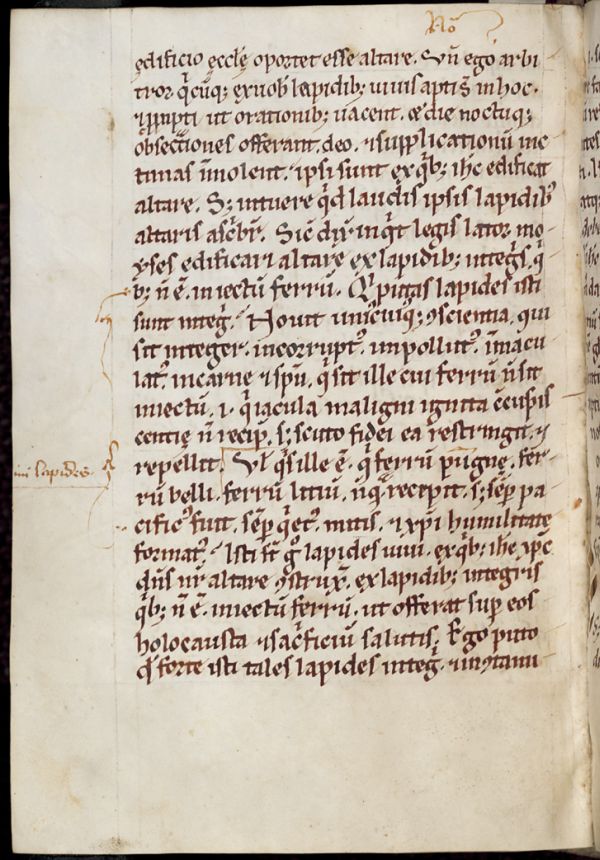 No͞
ędificio ęccl̄ę oportet esse altare. Vn̄ ego arbi
tror q̇cūq; ex uob̄ lapidib; uiuis apti s̄ in hoc.
⁊ p̄mpti ut orationib; uacent. & die noctuq;
obsectiones offerant deo. ⁊ supplicationū uic
timas īmolent. ipsi sunt ex q̇b; ih̄c edificat
altare. S; intuere q̇d laudis ipsis lapidib̄
altaris asc̄br̄. Sic̄ dix̄ inqͥt legis lator mo
yses edificari altare ex lapidib; integ̊s. q̇
b; n̄ ē iniectū ferrū. Q̇ putas lapides isti
sunt integ̊. Nouit unicuiq; ꝯscientia. qui
sit integer. incorrupt᷒. inpollut᷒. īmacu
lat᷒ in carne ⁊ sp̄u. q̇ sit ille cui ferrū n̄ sit
iniectū. i. q̇ iacula maligni ignita ꝯcupis
centię n̄ recip̄. s; scuto fidei ea restringit. ⁊
repellit. Vl̄ q̇s ille ē. q̇ ferrū pugnę. fer
rū belli. ferrū litiū. nūq̄ recepit. s; sēp pa
cific᷒ fuit. sēp q̇et᷒. mitis. ⁊ xp̄i humilitate
format᷒. Isti st̄ g̊ lapides uiui. ex q̇b; ih̄c xp̄c
dn̄s nr̄ altare ꝯstrux̄. ex lapidib; integris
q̇b; n̄ ē iniectū ferrū. ut offerat sup eos
holocausta ⁊ sac̊ficiū salutis. Ego puto
qd̄ forte isti tales lapides integ̊. ⁊ inꝯtami
lapides